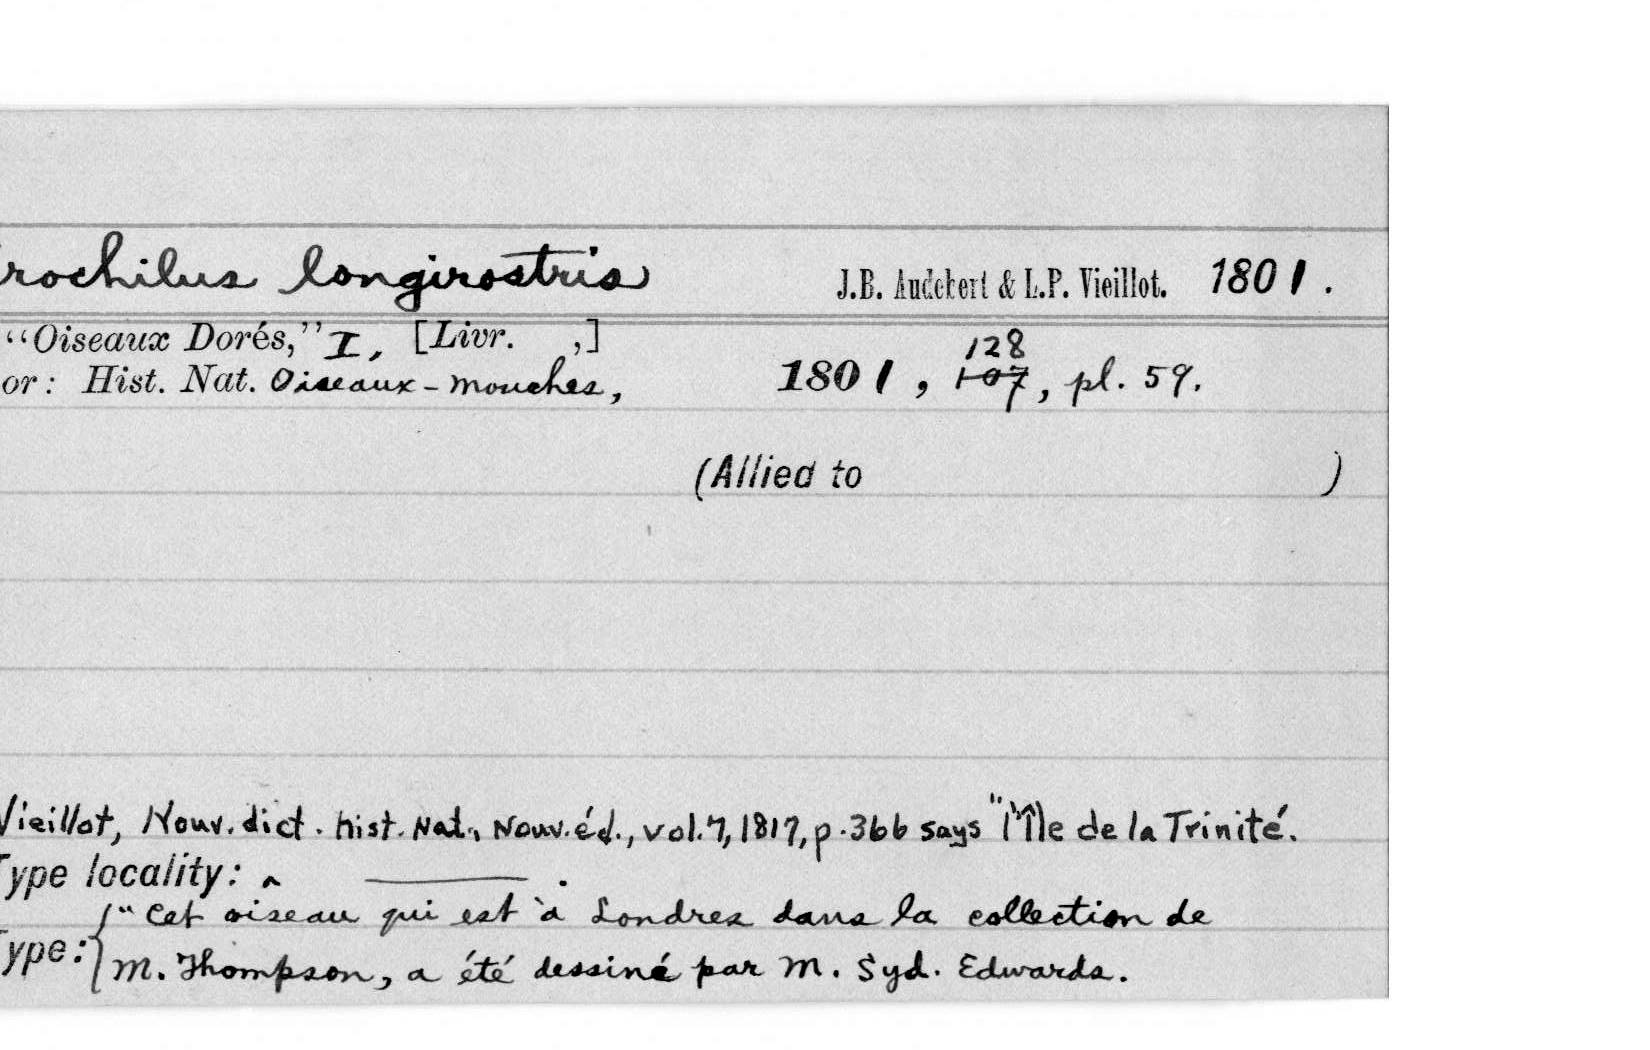 rochilus longirostris J.B. Audebert & L.P. Vieillot. 1801.
“Oiseaux Dorés,” I, [Livr. ,]
128
or: Hist. Nat. Oiseaux-mouches, 1801, 107, pl. 59.
(Allied to )
Vieillot, Nouv. dict. hist. Nat., Nouv. éd., vol. 7, 1817, p. 366 says "l'Île de la Trinité.
Type locality: ^ ———.
{"Cet oiseau qui est à Londres dans la collection de
Type: M. Thompson, a été dessiné par M. Syd. Edwards.